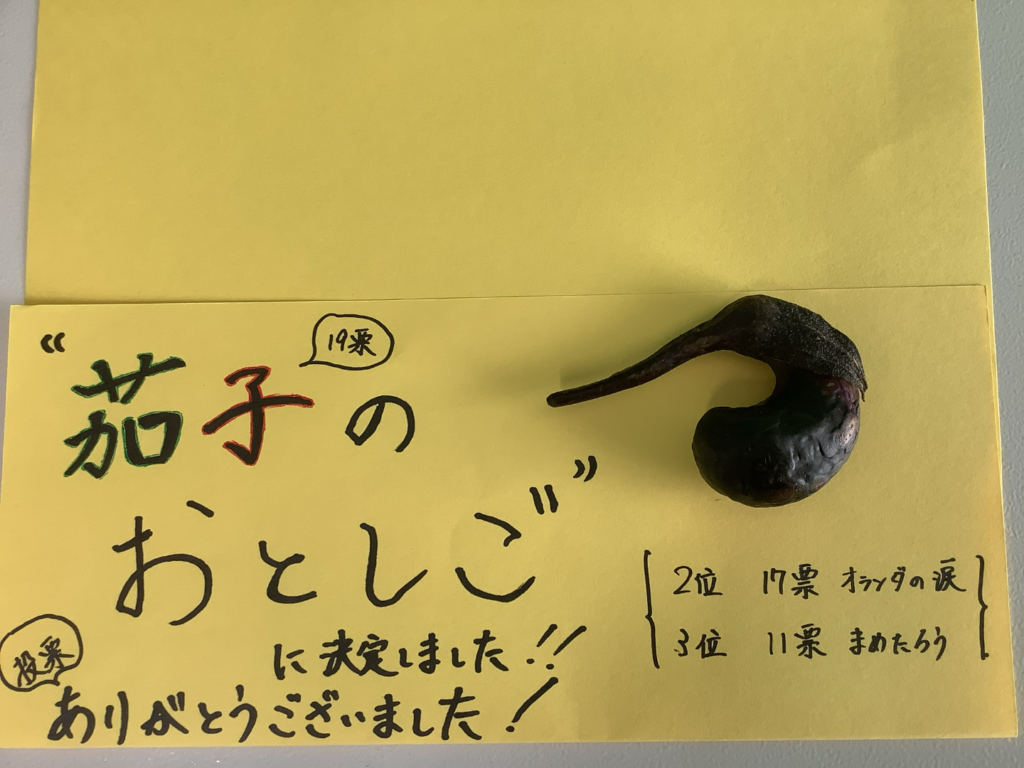 “茄子の
19票
おとしご”
に決定しました!!
投票
ありがとうございました!
2位 17票 オランダの涙
3位 11票 まめたろう